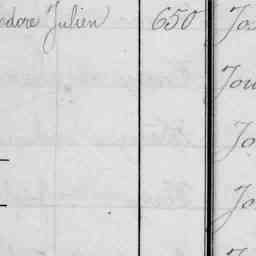 edore Julien 650 Jos
Jou
Jo
Jo